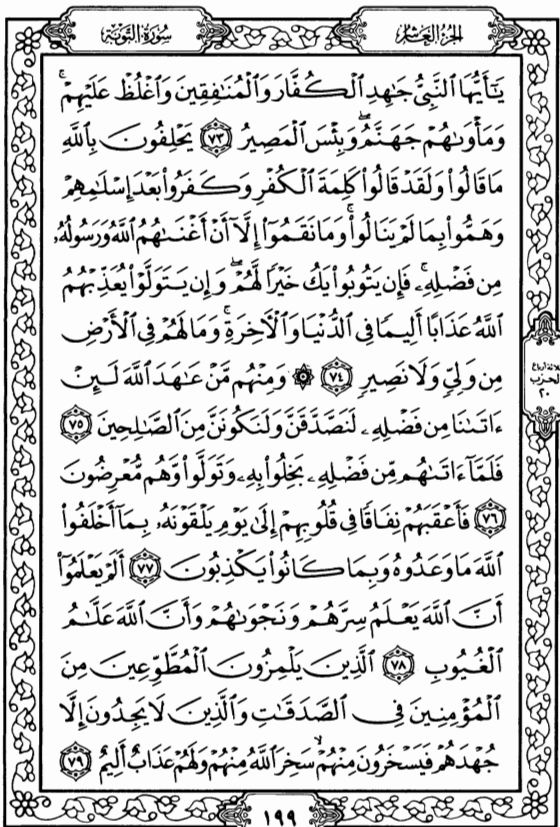 سُورَةُ التَّوْبَةِ
الجُزْءُ العَاشِرُ
يَٰٓأَيُّهَا ٱلنَّبِيُّ جَٰهِدِ ٱلْكُفَّارَ وَٱلْمُنَٰفِقِينَ وَٱغْلُظْ عَلَيْهِمْۚ
وَمَأْوَىٰهُمْ جَهَنَّمُۖ وَبِئْسَ ٱلْمَصِيرُ ٧٣ يَحْلِفُونَ بِٱللَّهِ
مَا قَالُوا۟ وَلَقَدْ قَالُوا۟ كَلِمَةَ ٱلْكُفْرِ وَكَفَرُوا۟ بَعْدَ إِسْلَٰمِهِمْ
وَهَمُّوا۟ بِمَا لَمْ يَنَالُوا۟ۚ وَمَا نَقَمُوٓا۟ إِلَّآ أَنْ أَغْنَىٰهُمُ ٱللَّهُ وَرَسُولُهُۥ
مِن فَضْلِهِۦۚ فَإِن يَتُوبُوا۟ يَكُ خَيْرًا لَّهُمْۖ وَإِن يَتَوَلَّوْا۟ يُعَذِّبْهُمُ
ٱللَّهُ عَذَابًا أَلِيمًا فِي ٱلدُّنْيَا وَٱلْءَاخِرَةِۚ وَمَا لَهُمْ فِي ٱلْأَرْضِ
مِن وَلِيٍّ وَلَا نَصِيرٍ ٧٤ ۞ وَمِنْهُم مَّنْ عَٰهَدَ ٱللَّهَ لَئِنْ
ءَاتَىٰنَا مِن فَضْلِهِۦ لَنَصَّدَّقَنَّ وَلَنَكُونَنَّ مِنَ ٱلصَّٰلِحِينَ ٧٥
فَلَمَّآ ءَاتَىٰهُم مِّن فَضْلِهِۦ بَخِلُوا۟ بِهِۦ وَتَوَلَّوا۟ وَّهُم مُّعْرِضُونَ
٧٦ فَأَعْقَبَهُمْ نِفَاقًا فِي قُلُوبِهِمْ إِلَىٰ يَوْمِ يَلْقَوْنَهُۥ بِمَآ أَخْلَفُوا۟
ٱللَّهَ مَا وَعَدُوهُ وَبِمَا كَانُوا۟ يَكْذِبُونَ ٧٧ أَلَمْ يَعْلَمُوٓا۟
أَنَّ ٱللَّهَ يَعْلَمُ سِرَّهُمْ وَنَجْوَىٰهُمْ وَأَنَّ ٱللَّهَ عَلَّٰمُ
ٱلْغُيُوبِ ٧٨ ٱلَّذِينَ يَلْمِزُونَ ٱلْمُطَّوِّعِينَ مِنَ
ٱلْمُؤْمِنِينَ فِي ٱلصَّدَقَٰتِ وَٱلَّذِينَ لَا يَجِدُونَ إِلَّا
جُهْدَهُمْ فَيَسْخَرُونَ مِنْهُمْۙ سَخِرَ ٱللَّهُ مِنْهُمْ وَلَهُمْ عَذَابٌ أَلِيمٌ ٧٩
الحزب
٢٠
١٩٩